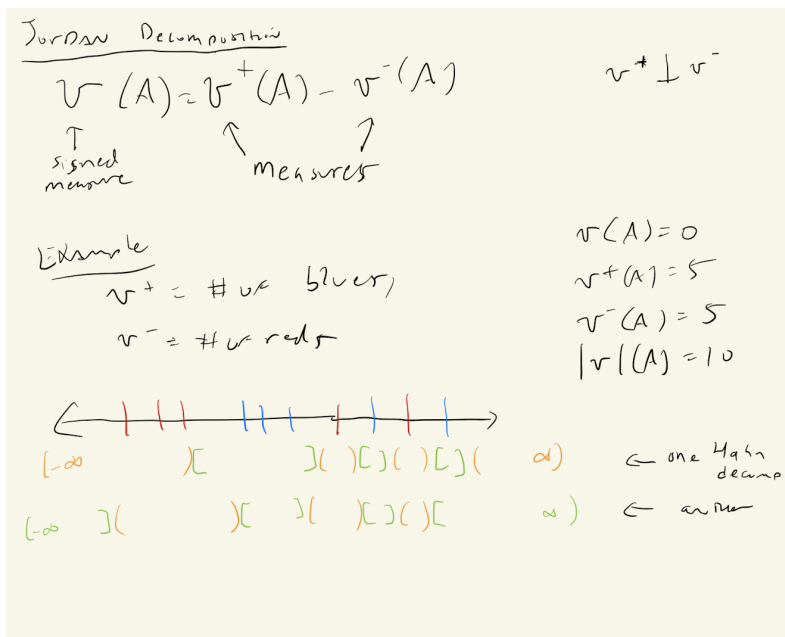 Jordan Decomposition
v(A) = v⁺(A) - v⁻(A)
v⁺ ⊥ v⁻
↑ ↑ ↑
signed measure
measures
Example
v⁺ = # of blues,
v⁻ = # of reds
v(A) = 0
v⁺(A) = 5
v⁻(A) = 5
|v|(A) = 10
(-∞ )[ ]( )[ ]( )[ ]( ∞) ← one Hahn decomp
(-∞ ]( )[ ]( )[ ]( )[ ∞) ← another